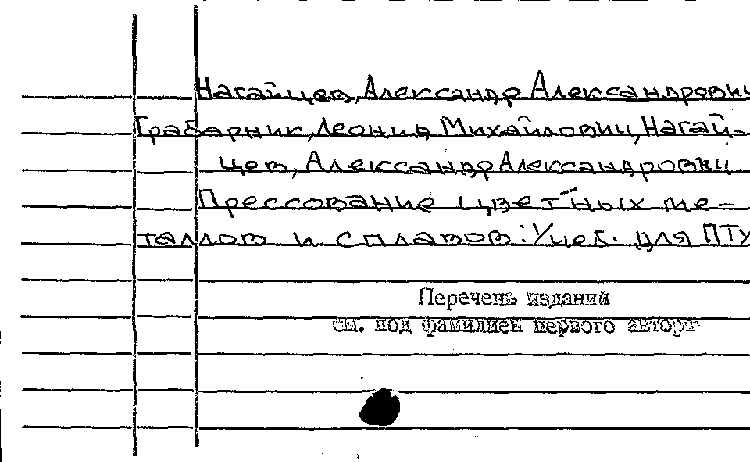 Нагайцев, Александр Александрович
Грабарник, Леонид Михайлович, Нагай-
цев, Александр Александрович
Прессование цветных ме-
таллов и сплавов: Учеб. для ПТУ
Перечень изданий
см. под фамилией первого автора